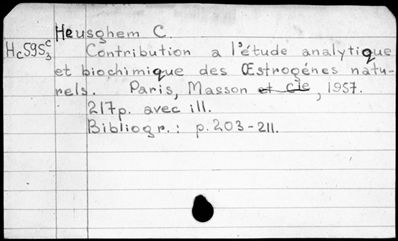 Heusghem C.
Hc595c3 Contribution a l'étude analytique
et biochimique des Œstrogénes natu-
rels. Paris, Masson et Cie, 1957.
217p. avec ill.
Bibliogr.: p.203-211.